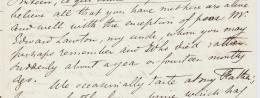 believe all that you have mother are alive
and with the exception of poor Mr.
Edward Lawton, my uncle, whom you may
perhaps remember and who died rather
suddenly about a year or fourteen months
ago.
We occasionally write at my
which has